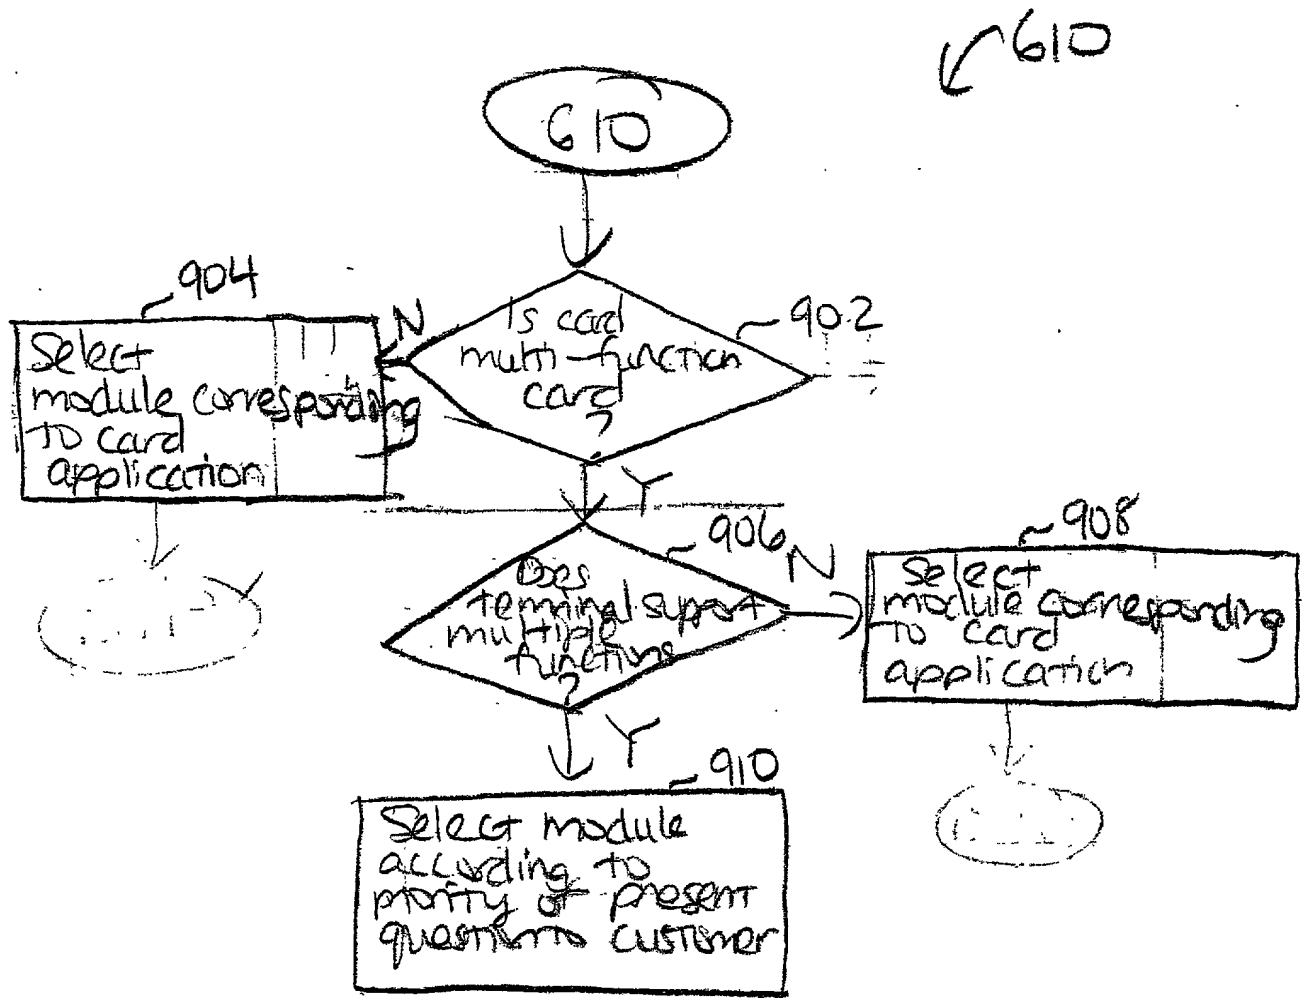 610
610
904
Select
module corresponding
to card
application
N
Is card
multi-function
card
?
902
Y
906
Does
terminal support
multiple
functions
?
N
908
Select
module corresponding
to card
application
Y
910
Select module
according to
priority or present
question to customer